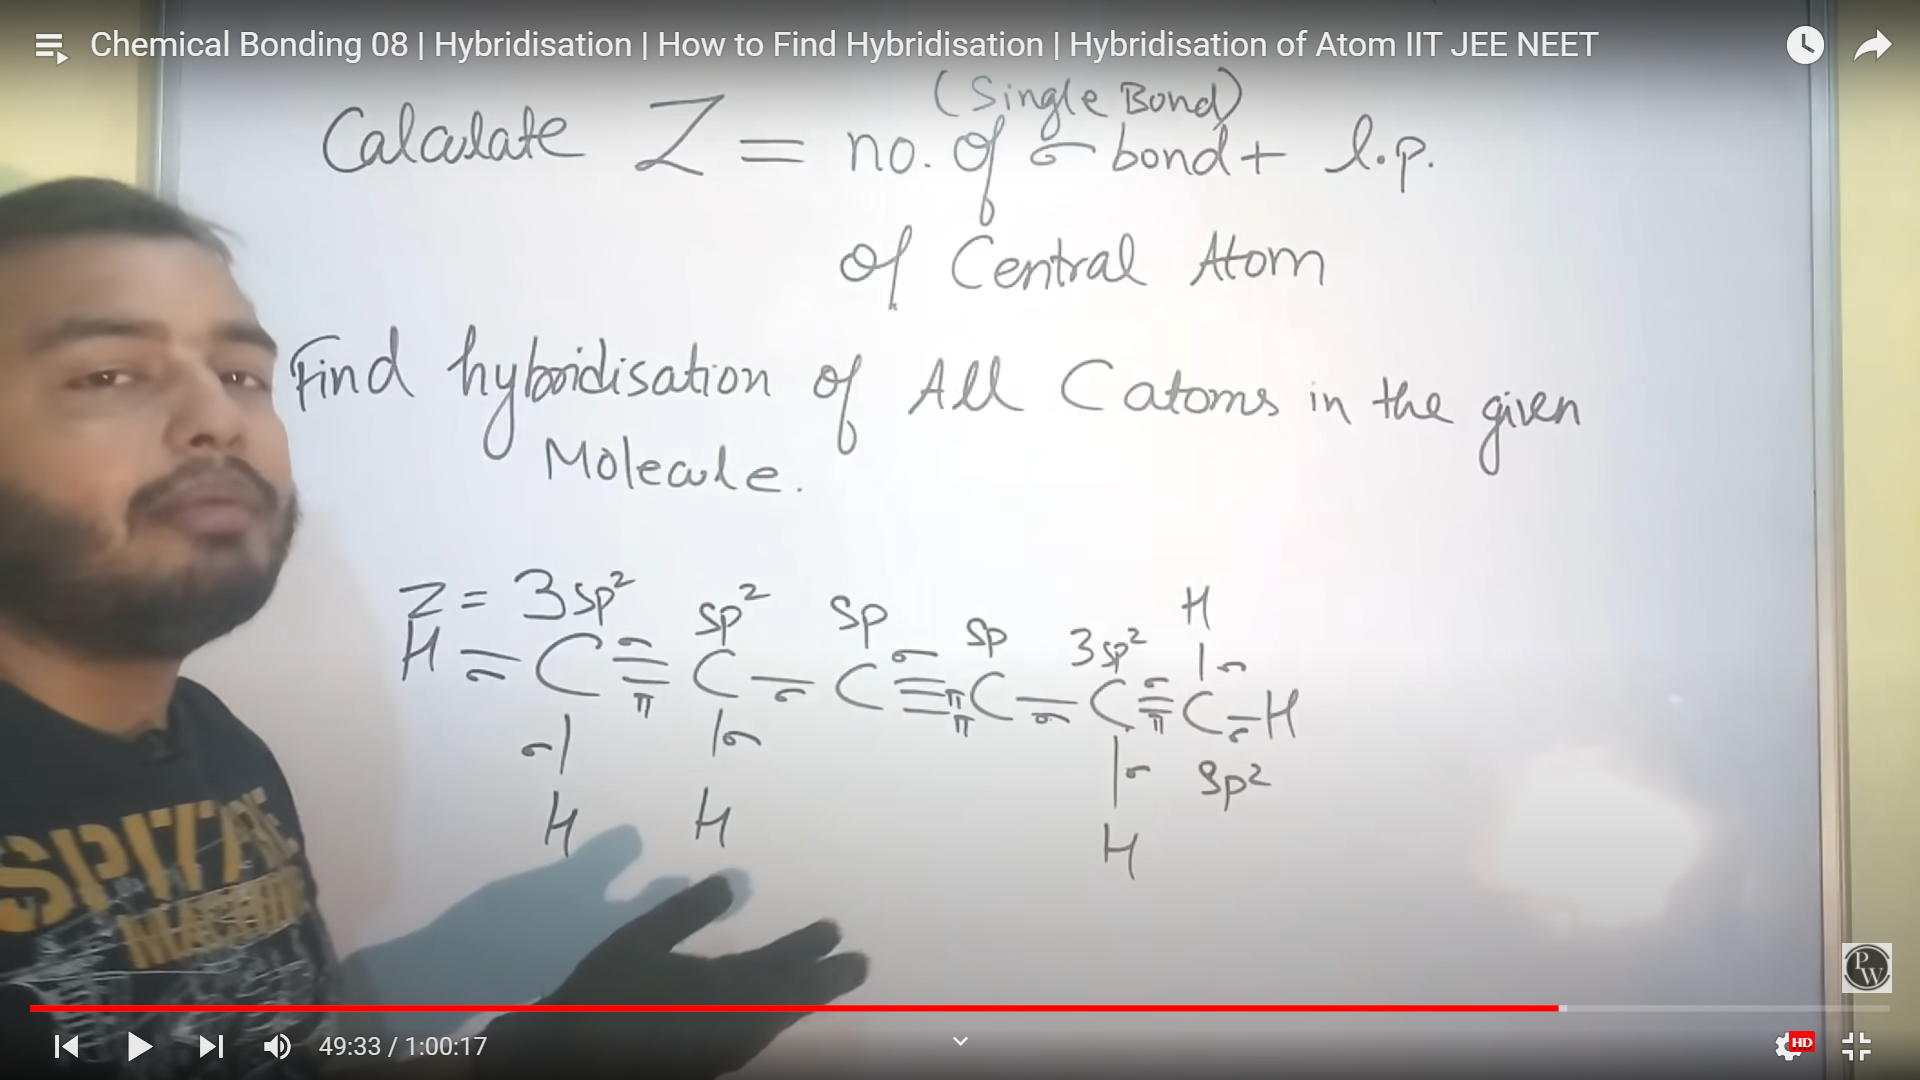 Chemical Bonding 08 | Hybridisation | How to Find Hybridisation | Hybridisation of Atom IIT JEE NEET
(Single Bond)
Calculate Z = no. of σ bond + l.p.
of Central Atom
Find hybridisation of All C atoms in the given
Molecule.
H
Z = 3sp² sp² sp sp 3sp²
H – C = C – C ≡ C – C = C – H
σ σ σ σ σ σ σ σ
π π π π π
σ σ σ sp²
H H H
SPIT
MACHIN
PW
49:33 / 1:00:17
HD